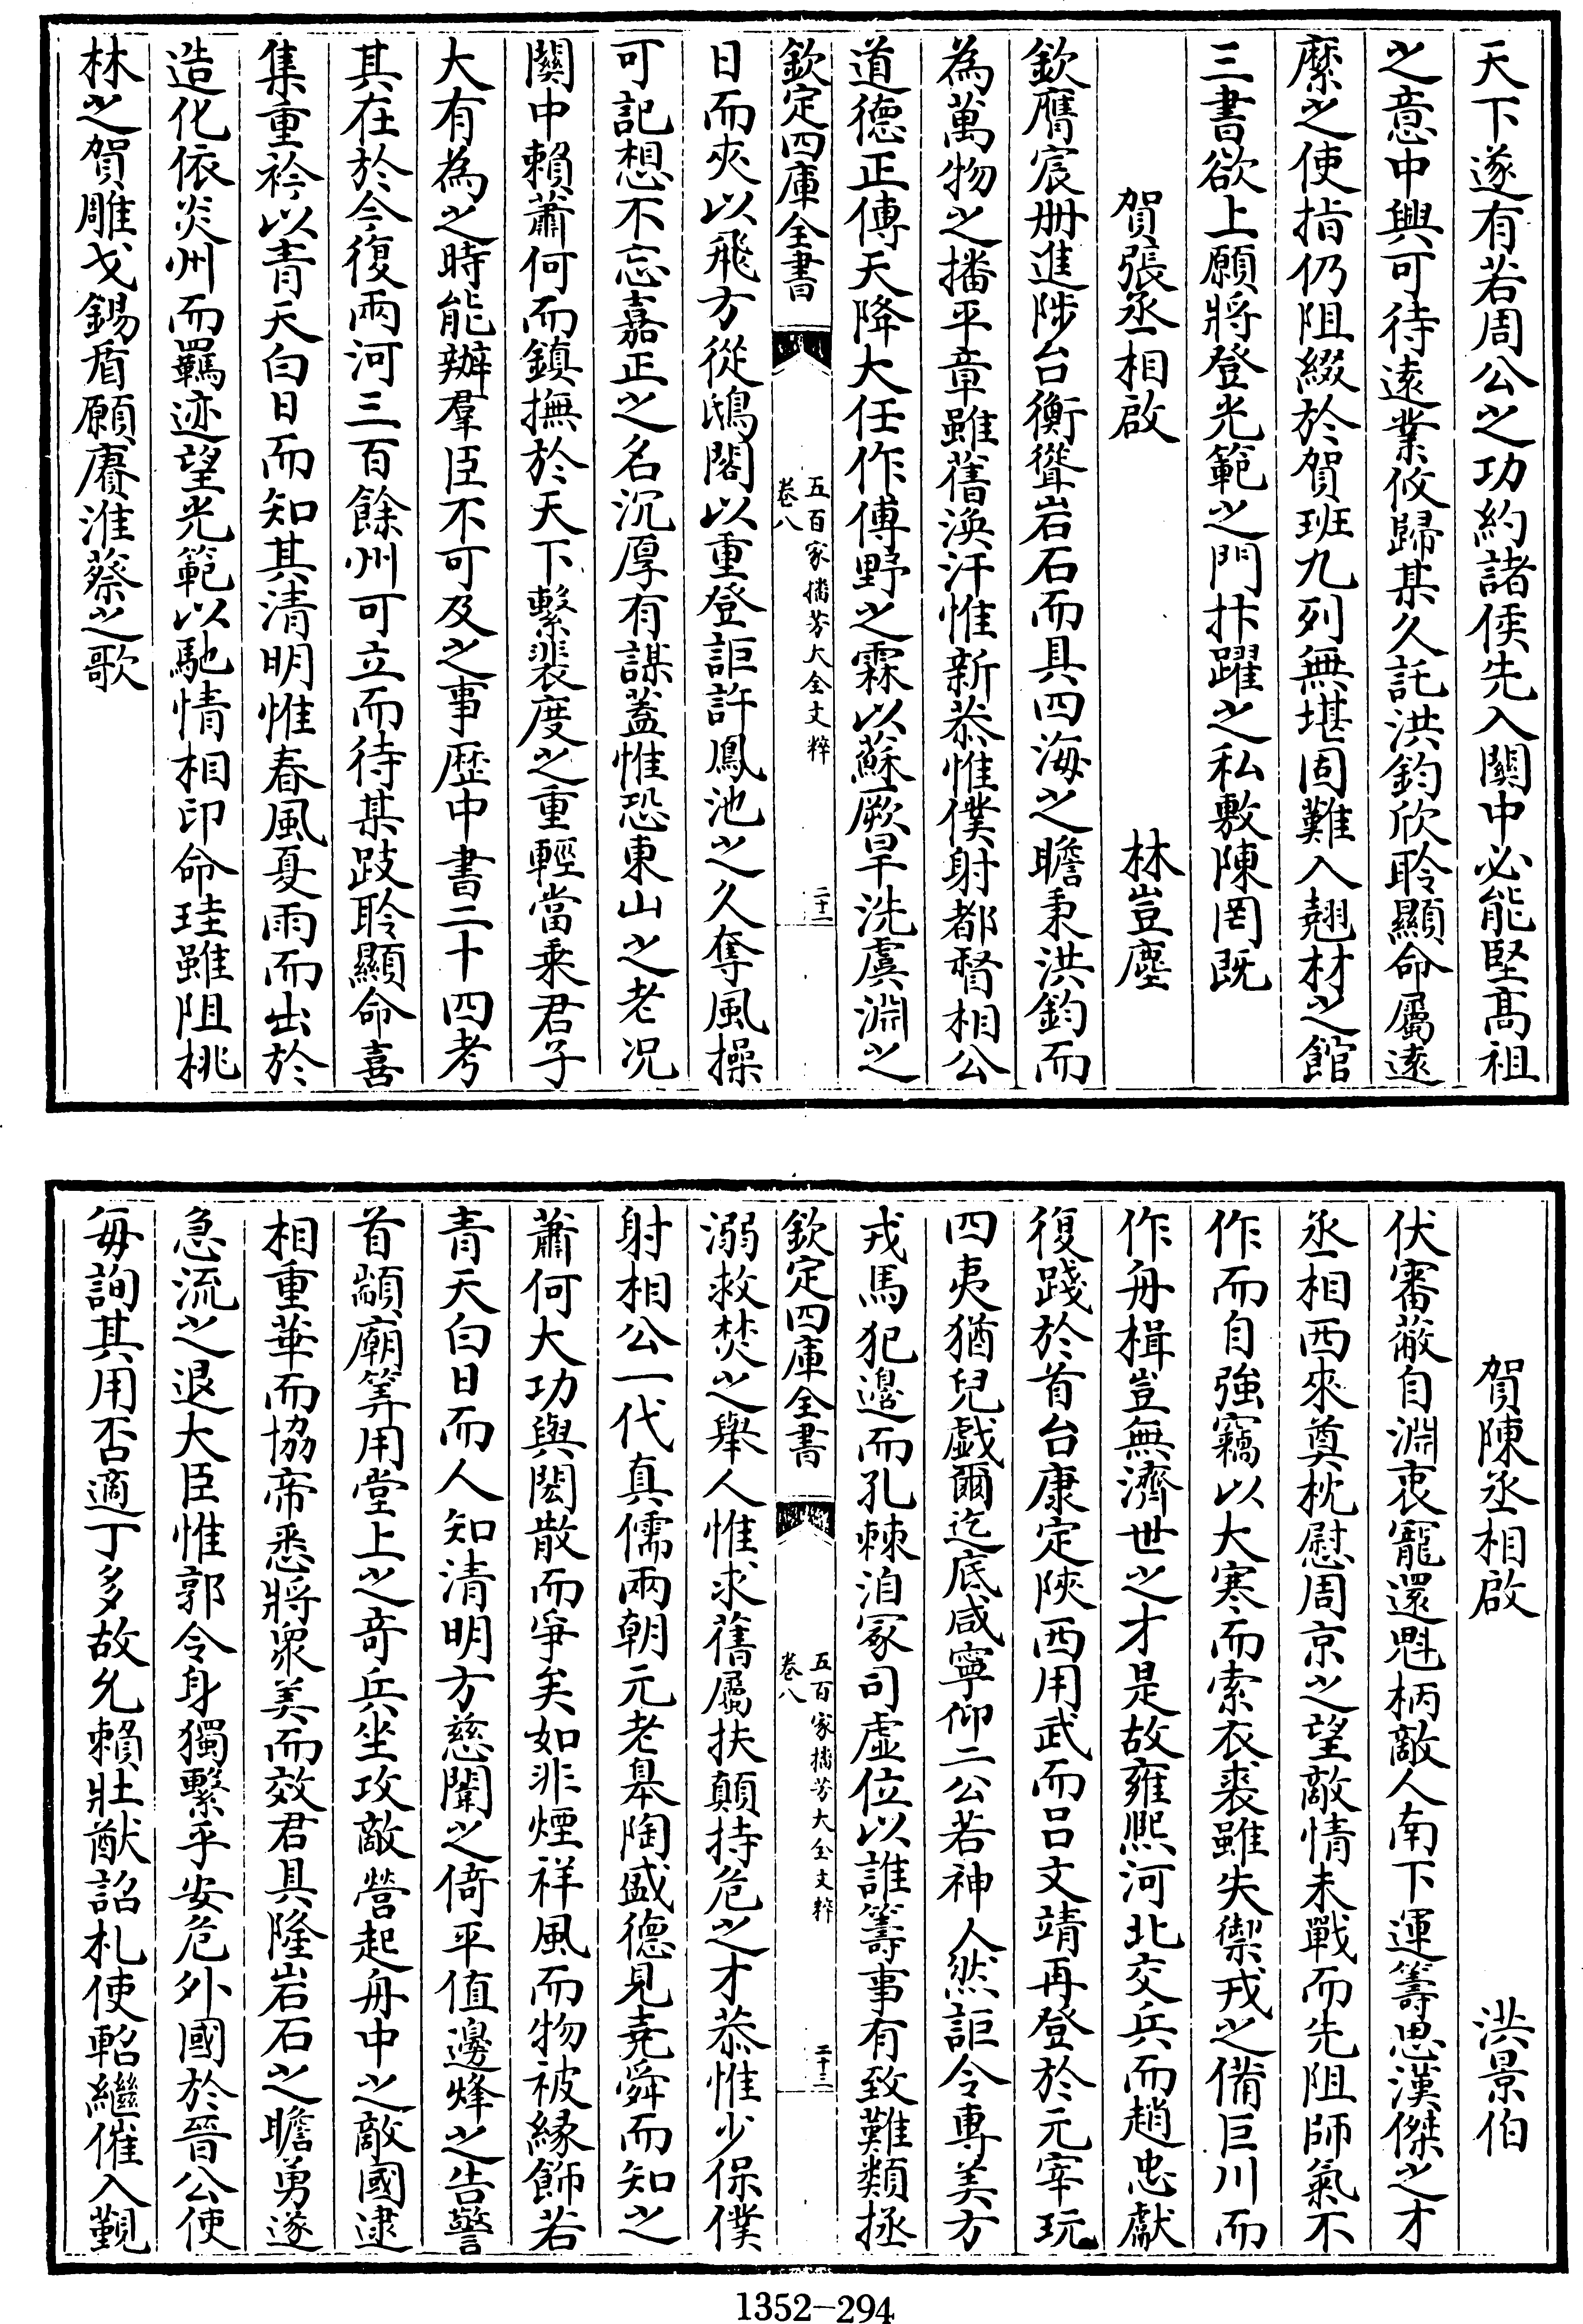 天下遂有若周公之功約諸侯先入關中必能堅高祖
之意中興可待遠業攸歸某久託洪鈞欣聆顯命屬遠
縻之使指仍阻綴於賀班九列無堪固難入翹材之館
三書欲上願將登光範之門抃躍之私敷陳罔既
賀張丞相啟 林豈塵
欽膺宸册進陟台衡聳岩石而具四海之瞻秉洪鈞而
為萬物之播平章雖舊渙汗惟新恭惟僕射都督相公
道德正傳天降大任作傅野之霖以蘇厥旱洗虞淵之
欽定四庫全書 五百家播芳大全文粹 卷八 二十二
日而夾以飛方從鴟閣以重登詎許鳳池之久奪風操
可記想不忘嘉正之名沉厚有謀蓋惟恐東山之老况
關中賴蕭何而鎮撫於天下繫裴度之重輕當乘君子
大有為之時能辦羣臣不可及之事歷中書二十四考
其在於今復兩河三百餘州可立而待某跂聆顯命喜
集重衿以青天白日而知其清明惟春風夏雨而出於
造化依炎州而羈迹望光範以馳情相印命珪雖阻桃
林之賀雕戈錫盾願賡淮蔡之歌
賀陳丞相啟 洪景伯
伏審蔽自淵衷寵還魁柄敵人南下運籌思漢傑之才
丞相西來奠枕慰周京之望敵情未戰而先阻師氣不
作而自強竊以大寒而索衣裘雖失禦戎之備巨川而
作舟楫豈無濟世之才是故雍熙河北交兵而趙忠獻
復踐於首台康定陝西用武而吕文靖再登於元宰玩
四夷猶兒戲爾迄底咸寧仰二公若神人然詎令專美方
戎馬犯邉而孔棘洎冢司虚位以誰籌事有致難類拯
欽定四庫全書 五百家播芳大全文粹 卷八 二十三
溺救焚之舉人惟求舊屬扶顛持危之才恭惟少保僕
射相公一代真儒兩朝元老皋陶盛德見堯舜而知之
蕭何大功與閎散而爭矣如非煙祥風而物被緣飾若
青天白日而人知清明方慈闈之倚平值邊烽之告警
首顓廟筭用堂上之竒兵坐攻敵營起舟中之敵國逮
相重華而協帝悉將衆美而效君具隆岩石之瞻勇遂
急流之退大臣惟郭令身獨繫乎安危外國於晉公使
每詢其用否適丁多故允賴壯猷詔札使軺繼催入覲
1352-294